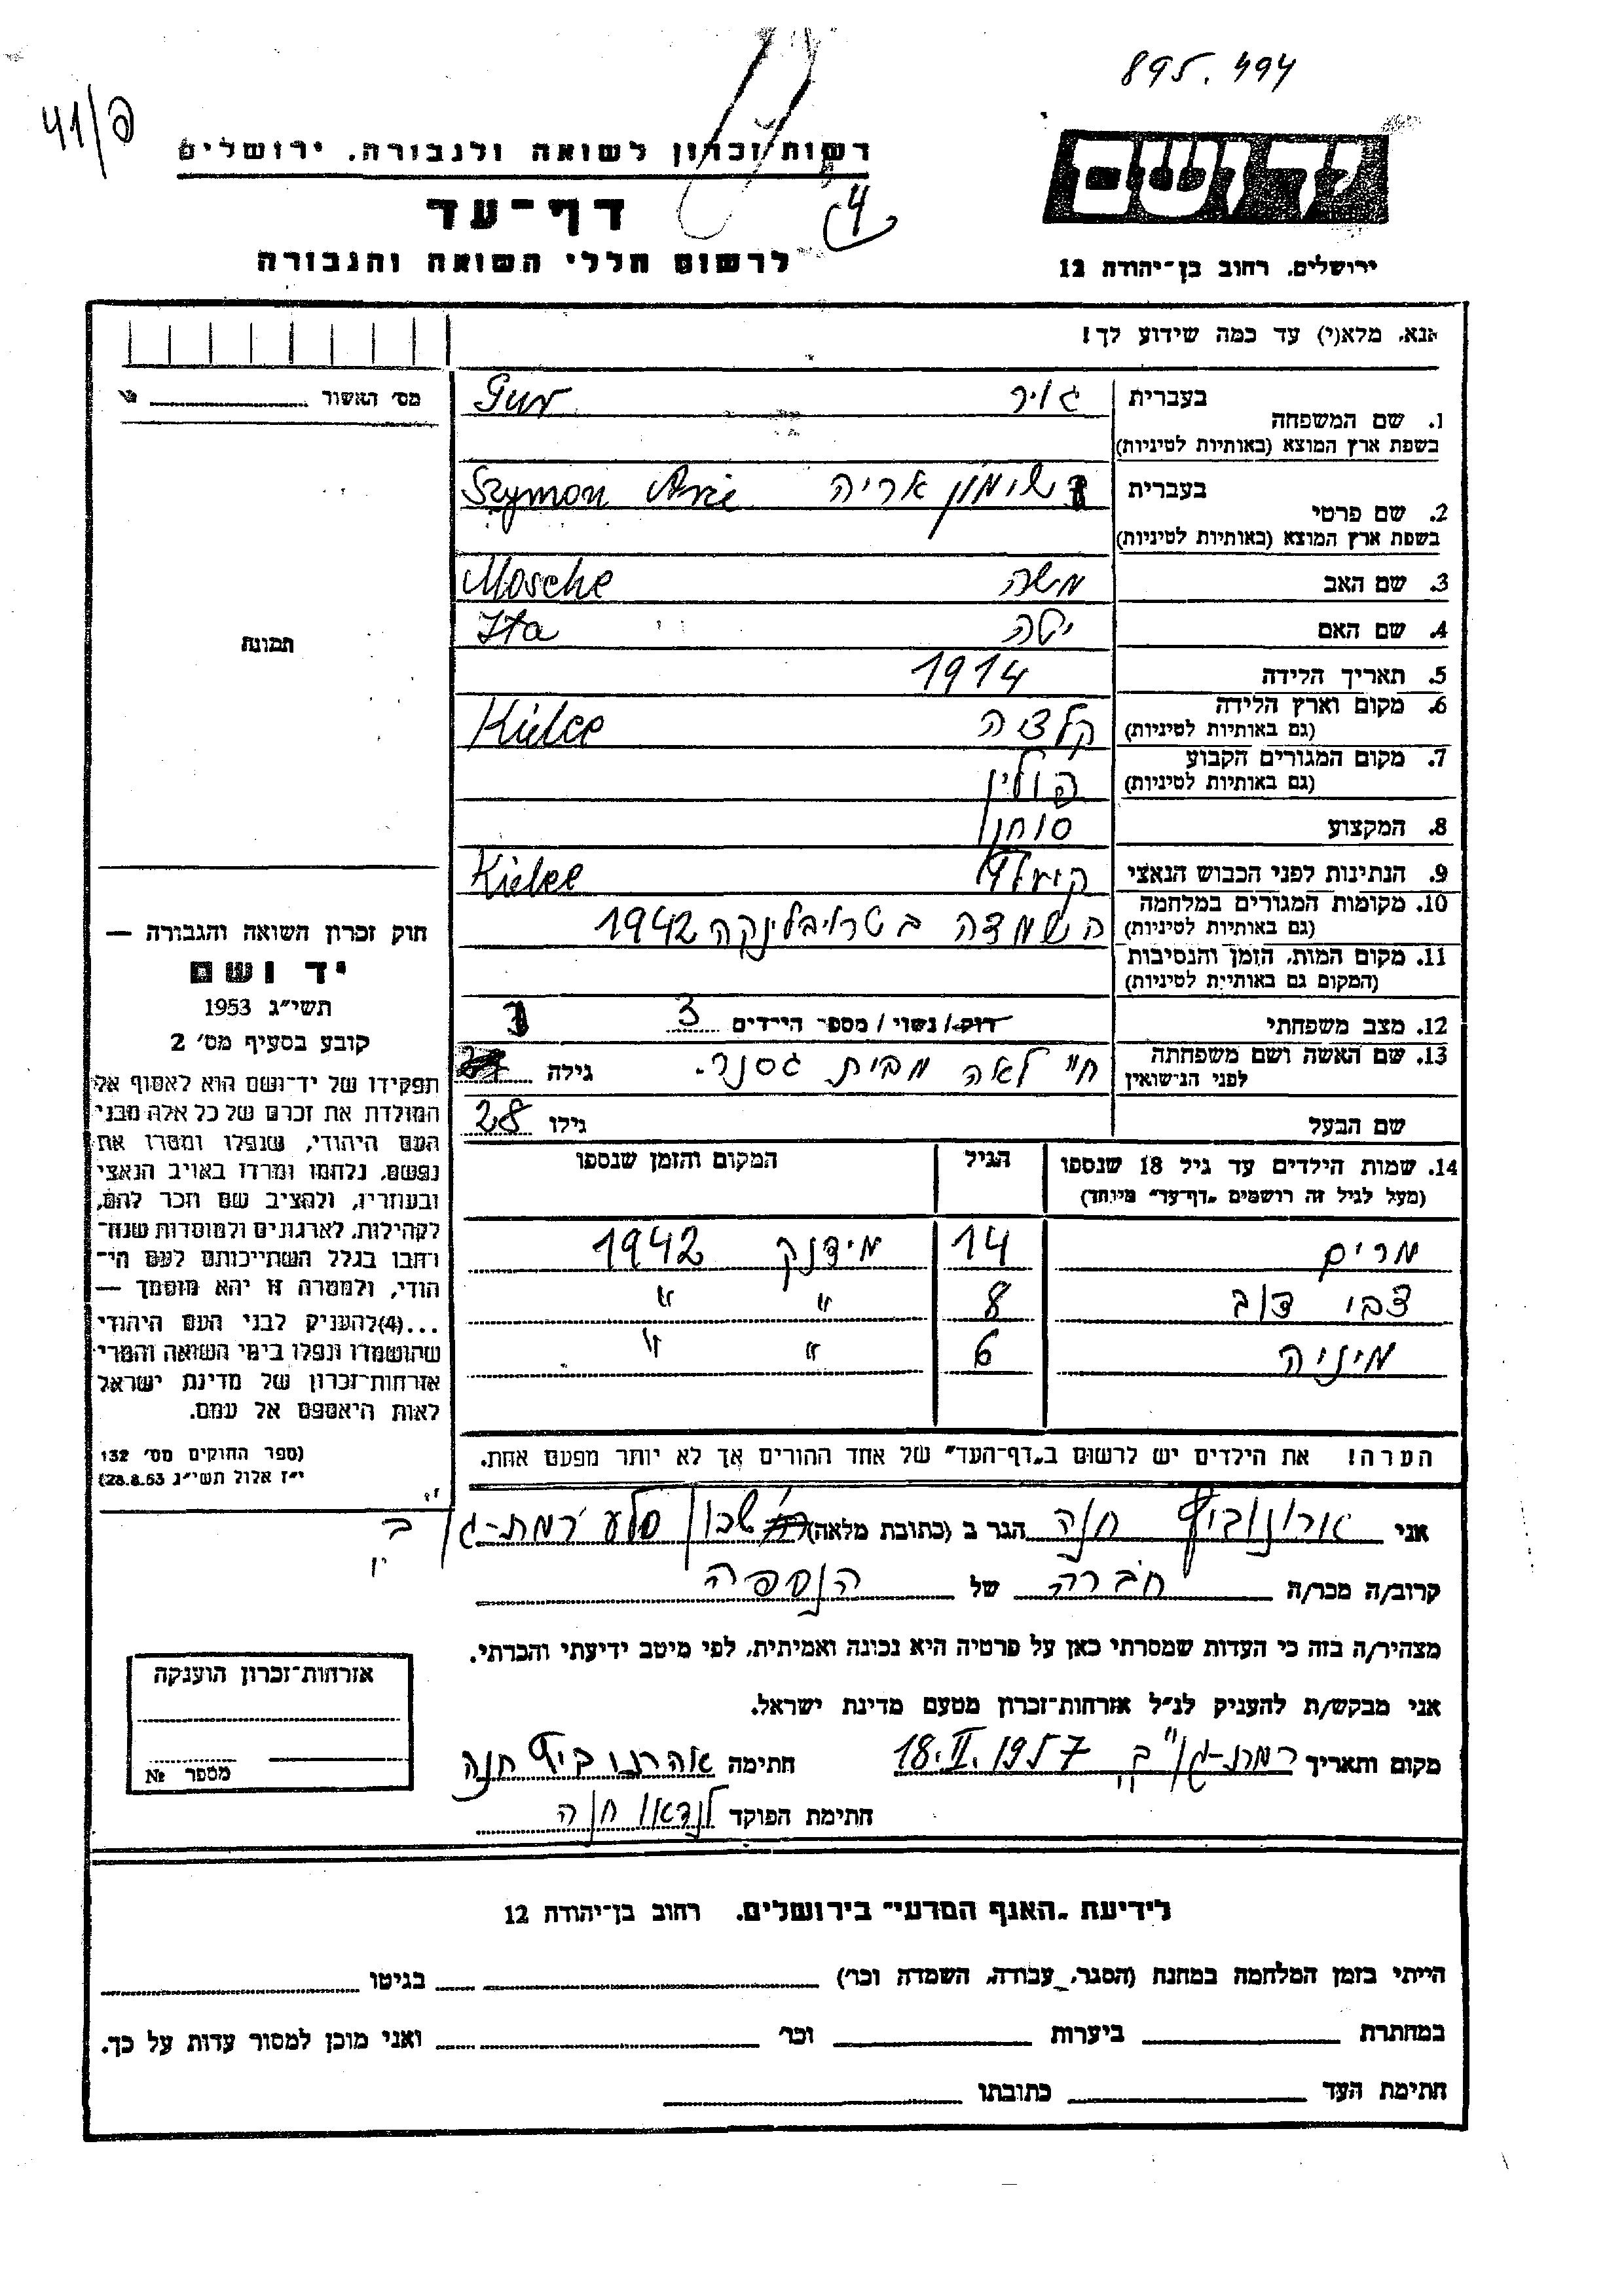 895.494
41/פ
רשות זכרון לשואה ולגבורה. ירושלים
דף-עד
לרשום חללי השואה והגבורה
4
יד ושם
ירושלים. רחוב בן-יהודה 12
אנא. מלא(י) עד כמה שידוע לך!
מס' האשור
1. שם המשפחה
בעברית
גויר
Gur
בשפת ארץ המוצא (באותיות לטיניות)
2. שם פרטי
בעברית
שימון אריה
Szymon Arie
בשפת ארץ המוצא (באותיות לטיניות)
3. שם האב משה Mosche
4. שם האם יטה Ita
תמונה
5. תאריך הלידה 1914
6. מקום וארץ הלידה קלציה Kielce
(גם באותיות לטיניות)
7. מקום המגורים הקבוע פולין
(גם באותיות לטיניות)
8. המקצוע סוחן
9. הנתינות לפני הכבוש הנאצי Kielce
10. מקומות המגורים במלחמה השמדה בטרויבלינקה 1942
(גם באותיות לטיניות)
11. מקום המות. הזמן והנסיבות
(המקום גם באותיות לטיניות)
12. מצב משפחתי רוק/נשוי/מספר הילדים 3
13. שם האשה ושם משפחתה חי' לאה מבית גסנר. גילה
לפני הנישואין
שם הבעל גילו 28
14. שמות הילדים עד גיל 18 שנספו הגיל המקום והזמן שנספו
(מעל לגיל זה רושמים "דף-עד" מיוחד)
מרים 14 מידנק 1942
צבי דוב 8 " "
מיניה 6 " "
הערה! את הילדים יש לרשום ב"דף-העד" של אחד ההורים אך לא יותר מפעם אחת.
חוק זכרון השואה והגבורה —
יד ושם
תשי"ג 1953
קובע בסעיף מס' 2
תפקידו של יד-ושם הוא לאסוף אל
המולדת את זכרם של כל אלה מבני
העם היהודי, שנפלו ומסרו את
נפשם, נלחמו ומרדו באויב הנאצי
ובעוזריו, ולהציב שם וזכר להם,
לקהילות, לארגונים ולמוסדות שנח-
רבו בגלל השתייכותם לעם הי-
הודי, ולמטרה זו יהא מוסמך —
...(4)להעניק לבני העם היהודי
שהושמדו ונפלו בימי השואה והמרי
אזרחות-זכרון של מדינת ישראל
לאות היאספם אל עמם.
(ספר החוקים מס' 132
י"ז אלול תשי"ג 28.8.53)
אני ארונוביץ חנה הגר ב (כתובת מלאה) שכון סלע רמת-גן ב
קרוב/ה מכר/ה חברה של הנספה
מצהיר/ה בזה כי העדות שמסרתי כאן על פרטיה היא נכונה ואמיתית, לפי מיטב ידיעתי והכרתי.
אני מבקש/ת להעניק לנ"ל אזרחות-זכרון מטעם מדינת ישראל.
מקום ותאריך רמת-גן ב 18.II.1957 חתימה אהרנוביץ חנה
חתימת הפוקד לנדאו חנה
אזרחות-זכרון הוענקה
מספר №
לידיעת "האגף המדעי" בירושלים. רחוב בן-יהודה 12
הייתי בזמן המלחמה במחנה (הסגר, עבודה, השמדה וכו') בגיטו
במחתרת ביערות וכו' ואני מוכן למסור עדות על כך.
חתימת העד כתובתו